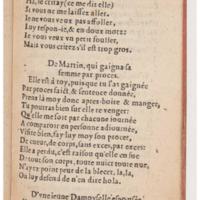 Ha, le criray (ce me dit elle)
Si vous ne me laissez aller.
Ie ne vous veux pas affoller,
Luy respon-ie, & en doux motz:
Ie vous veux vn petit fouller,
Mais vous criez s'il est trop gros.
De Martin, qui gaigna sa
femme par proces.
Elle est à toy, puis que tu l'as gaignée
Par proces faict, & sentence donnée,
Prens là moy donc apres boire & manger,
Tu pourras bien te venger:
Qu'elle me soit par chacune
A comparoir en personne adiournée,
Viste bien, fay luy son proces,
De cueur, de corps, sans exces, par exces:
Elle a perdu, c'est raison qu'elle en sue
De tout son corps, toute nuict toute nue,
N'ayez point peur de la blecer, la, la,
On luy defend de n'en dire hola.
D'vne ieune Damoyselle